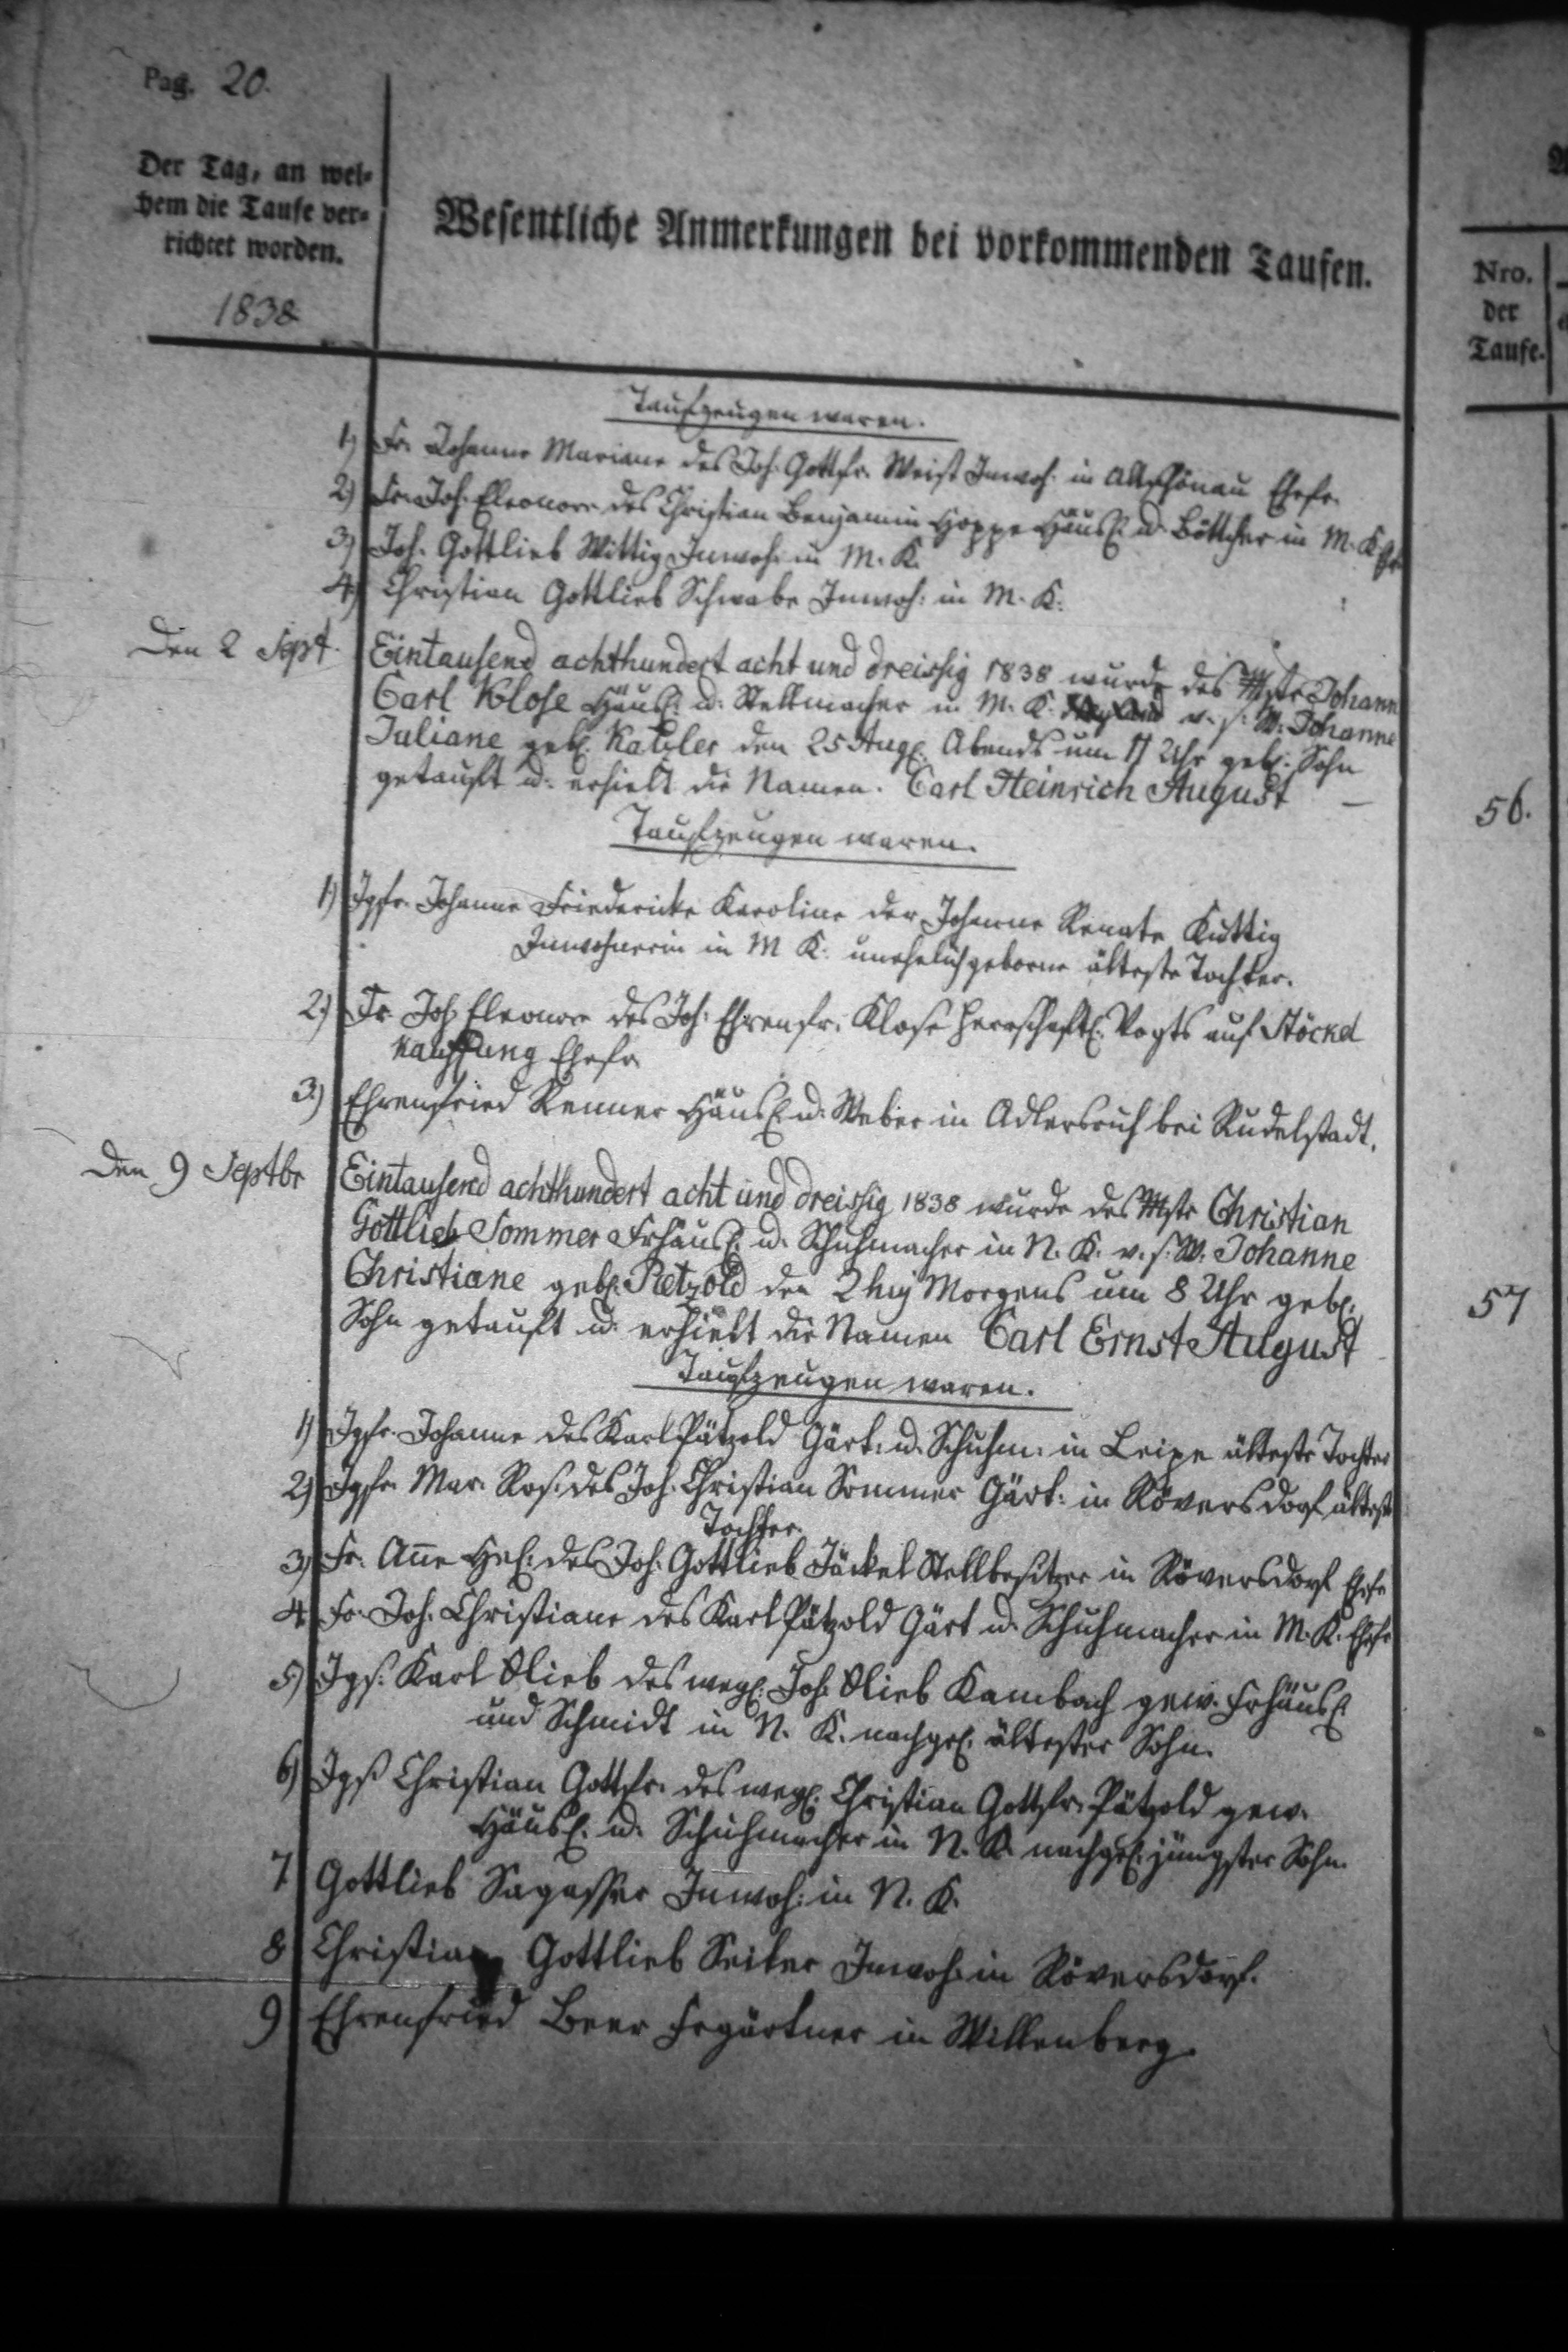 Pag. 20.
Der Tag, an wel-
chem die Taufe ver-
richtet worden.
1838
Wesentliche Anmerkungen bei vorkommenden Taufen.
Nro.
der
Taufe.
Taufzeugen waren.
1) Fr. Johanne Mariane des Joh. Gottfr. Weist Inwoh. in Altschönau Ehefr.
2) Fr. Joh. Eleonore des Christian Benjamin Hoppe Häusl. u. Böttcher in M. K.
3) Joh. Gottlieb Wittig Inwoh. in M. K.
4) Christian Gottlieb Schwabe Inwoh: in M. K.
Den 2 Sept. Eintausend achthundert acht und dreissig 1838 wurde des Mstr Johann
Carl Klose Häusl. u. Stellmacher in M. K. v. s. W. Johanne
Juliane geb. Katzler den 25 Aug. Abends um 11 Uhr geb. Sohn
getauft u. erhielt die Namen. Carl Heinrich August —
56.
Taufzeugen waren.
1) Jgfr. Johanne Friedericke Karoline der Johanne Renate Küttig
Inwohnerin in M K. unehelichgeborne älteste Tochter.
2.) Fr. Joh Eleonore des Joh. Ehrenfr. Klose herrschaftl. Vogts auf Stöckel
Kauffung Ehefr.
3.) Ehrenfried Renner Häusl. u. Weber in Adlersruh bei Rudelstadt.
Den 9 Septbr Eintausend achthundert acht und dreissig 1838 wurde des Mstr Christian
Gottlieb Sommer Frhäusl. u. Schuhmacher in N. K. v. s. W. Johanne
Christiane geb. Petzold den 2 huj Morgens um 8 Uhr geb.
57
Sohn getauft u. erhielt die Namen Carl Ernst August
Taufzeugen waren.
1) Jgfr. Johanne des Karl Pätzold Gärt. u. Schuhm. in Leipe älteste Tochter
2) Jgfr. Mar. Ros. des Joh. Christian Sommer Gärt. in Röversdorf älteste
Tochter.
3) Fr. Anne Hel. des Joh. Gottlieb Jäckel Stellbesitzer in Röversdorf Ehefr
4 Fr. Joh. Christiane des Karl Pätzold Gärt u. Schuhmacher in M. K. Ehefr
5) Jgs. Karl Glieb des wegl. Joh. Glieb Kambach gew. Frhäusl.
und Schmidt in N. K. nachgel. ältester Sohn.
6) Jgs Christian Gottfr. des wegl. Christian Gottfr. Pätzold gew.
Häusl. u. Schuhmacher in N. K. nachgel. jüngster Sohn.
7. Gottlieb Sagasser Inwoh: in N. K.
8 Christian Gottlieb Seiler Inwoh. in Röversdorf.
9 Ehrenfried Beer Frgärtner in Willenberg.